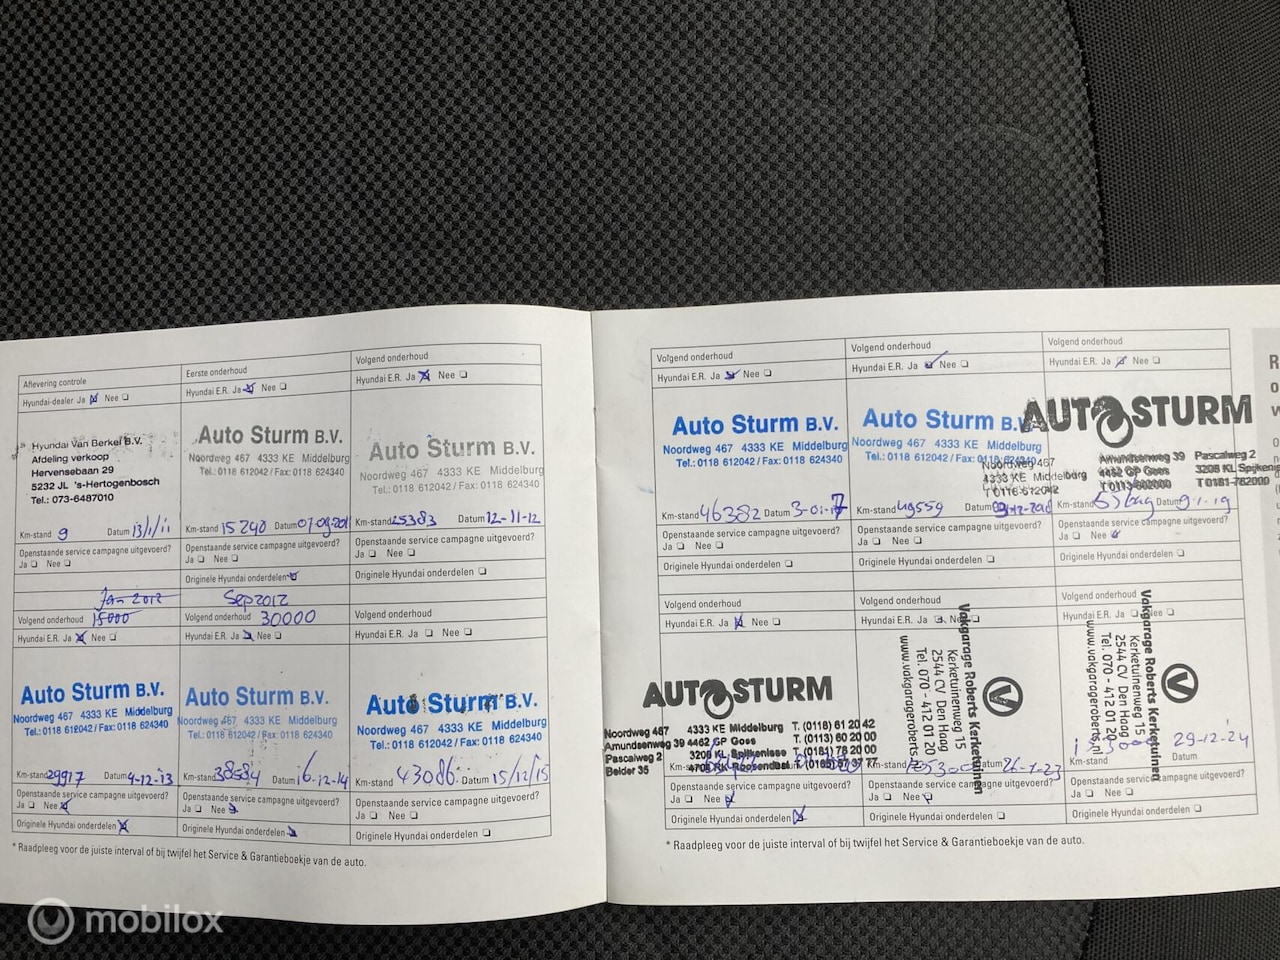 Aflevering controle
Hyundai-dealer Ja Nee
Hyundai Van Berkel B.V.
Afdeling verkoop
Hervensebaan 29
5232 JL 's-Hertogenbosch
Tel.: 073-6487010
Km-stand 9 Datum 13/1/11
Openstaande service campagne uitgevoerd?
Ja Nee
Jan 2012
Volgend onderhoud 15000
Eerste onderhoud
Hyundai E.R. Ja Nee
Auto Sturm B.V.
Noordweg 467 4333 KE Middelburg
Tel.: 0118 612042 / Fax: 0118 624340
Km-stand 15240 Datum
Openstaande service campagne uitgevoerd?
Ja Nee
Originele Hyundai onderdelen
Sep 2012
Volgend onderhoud 30000
Volgend onderhoud
Hyundai E.R. Ja Nee
Auto Sturm B.V.
Noordweg 467 4333 KE Middelburg
Tel.: 0118 612042 / Fax: 0118 624340
Km-stand 25383 Datum 12-11-12
Openstaande service campagne uitgevoerd?
Ja Nee
Originele Hyundai onderdelen
Volgend onderhoud
Hyundai E.R. Ja Nee
Auto Sturm B.V.
Noordweg 467 4333 KE Middelburg
Tel.: 0118 612042 / Fax: 0118 624340
Km-stand 29917 Datum 4-12-13
Openstaande service campagne uitgevoerd?
Ja Nee
Originele Hyundai onderdelen
Hyundai E.R. Ja Nee
Auto Sturm B.V.
Noordweg 467 4333 KE Middelburg
Tel.: 0118 612042 / Fax: 0118 624340
Km-stand 38584 Datum 16-12-14
Openstaande service campagne uitgevoerd?
Ja Nee
Originele Hyundai onderdelen
Hyundai E.R. Ja Nee
Auto Sturm B.V.
Noordweg 467 4333 KE Middelburg
Tel.: 0118 612042 / Fax: 0118 624340
Km-stand 43086 Datum 15/12/15
Openstaande service campagne uitgevoerd?
Ja Nee
Originele Hyundai onderdelen
* Raadpleeg voor de juiste interval of bij twijfel het Service & Garantieboekje van de auto.
Volgend onderhoud
Hyundai E.R. Ja Nee
Auto Sturm B.V.
Noordweg 467 4333 KE Middelburg
Tel.: 0118 612042 / Fax: 0118 624340
Km-stand 46382 Datum 3-01-17
Openstaande service campagne uitgevoerd?
Ja Nee
Originele Hyundai onderdelen
Volgend onderhoud
Hyundai E.R. Ja Nee
Auto Sturm B.V.
Noordweg 467 4333 KE Middelburg
Tel.: 0118 612042 / Fax: 0118 624340
Km-stand 49559 Datum
Openstaande service campagne uitgevoerd?
Ja Nee
Originele Hyundai onderdelen
Volgend onderhoud
Hyundai E.R. Ja Nee
AUTO STURM
Noordweg 467
4333 KE Middelburg
Amundsenweg 39
4462 GP Goes
Pascalweg 2
3208 KL Spijkenisse
T 0181-782000
Km-stand Datum 9-1-19
Openstaande service campagne uitgevoerd?
Ja Nee
Originele Hyundai onderdelen
Volgend onderhoud
Hyundai E.R. Ja Nee
AUTO STURM
Noordweg 467 4333 KE Middelburg T. (0118) 61 20 42
Amundsenweg 39 4462 GP Goes T. (0113) 60 20 00
Pascalweg 2 3208 KL Spijkenisse T. (0181) 78 20 00
Belder 35 4704 RK Roosendaal
Km-stand
Openstaande service campagne uitgevoerd?
Ja Nee
Originele Hyundai onderdelen
Volgend onderhoud
Hyundai E.R. Ja Nee
Vakgarage Roberts Kerketuinen
Kerketuinenweg 15
2544 CV Den Haag
Tel. 070 - 412 01 20
www.vakgarageroberts.
Km-stand Datum 26-1-23
Openstaande service campagne uitgevoerd?
Ja Nee
Originele Hyundai onderdelen
Volgend onderhoud
Hyundai E.R. Ja Nee
Vakgarage Roberts Kerketuinen
Kerketuinenweg 15
2544 CV Den Haag
Tel. 070 - 412 01 20
www.vakgarageroberts.nl
Km-stand Datum 29-12-24
Openstaande service campagne uitgevoerd?
Ja Nee
Originele Hyundai onderdelen
* Raadpleeg voor de juiste interval of bij twijfel het Service & Garantieboekje van de auto.
mobilox